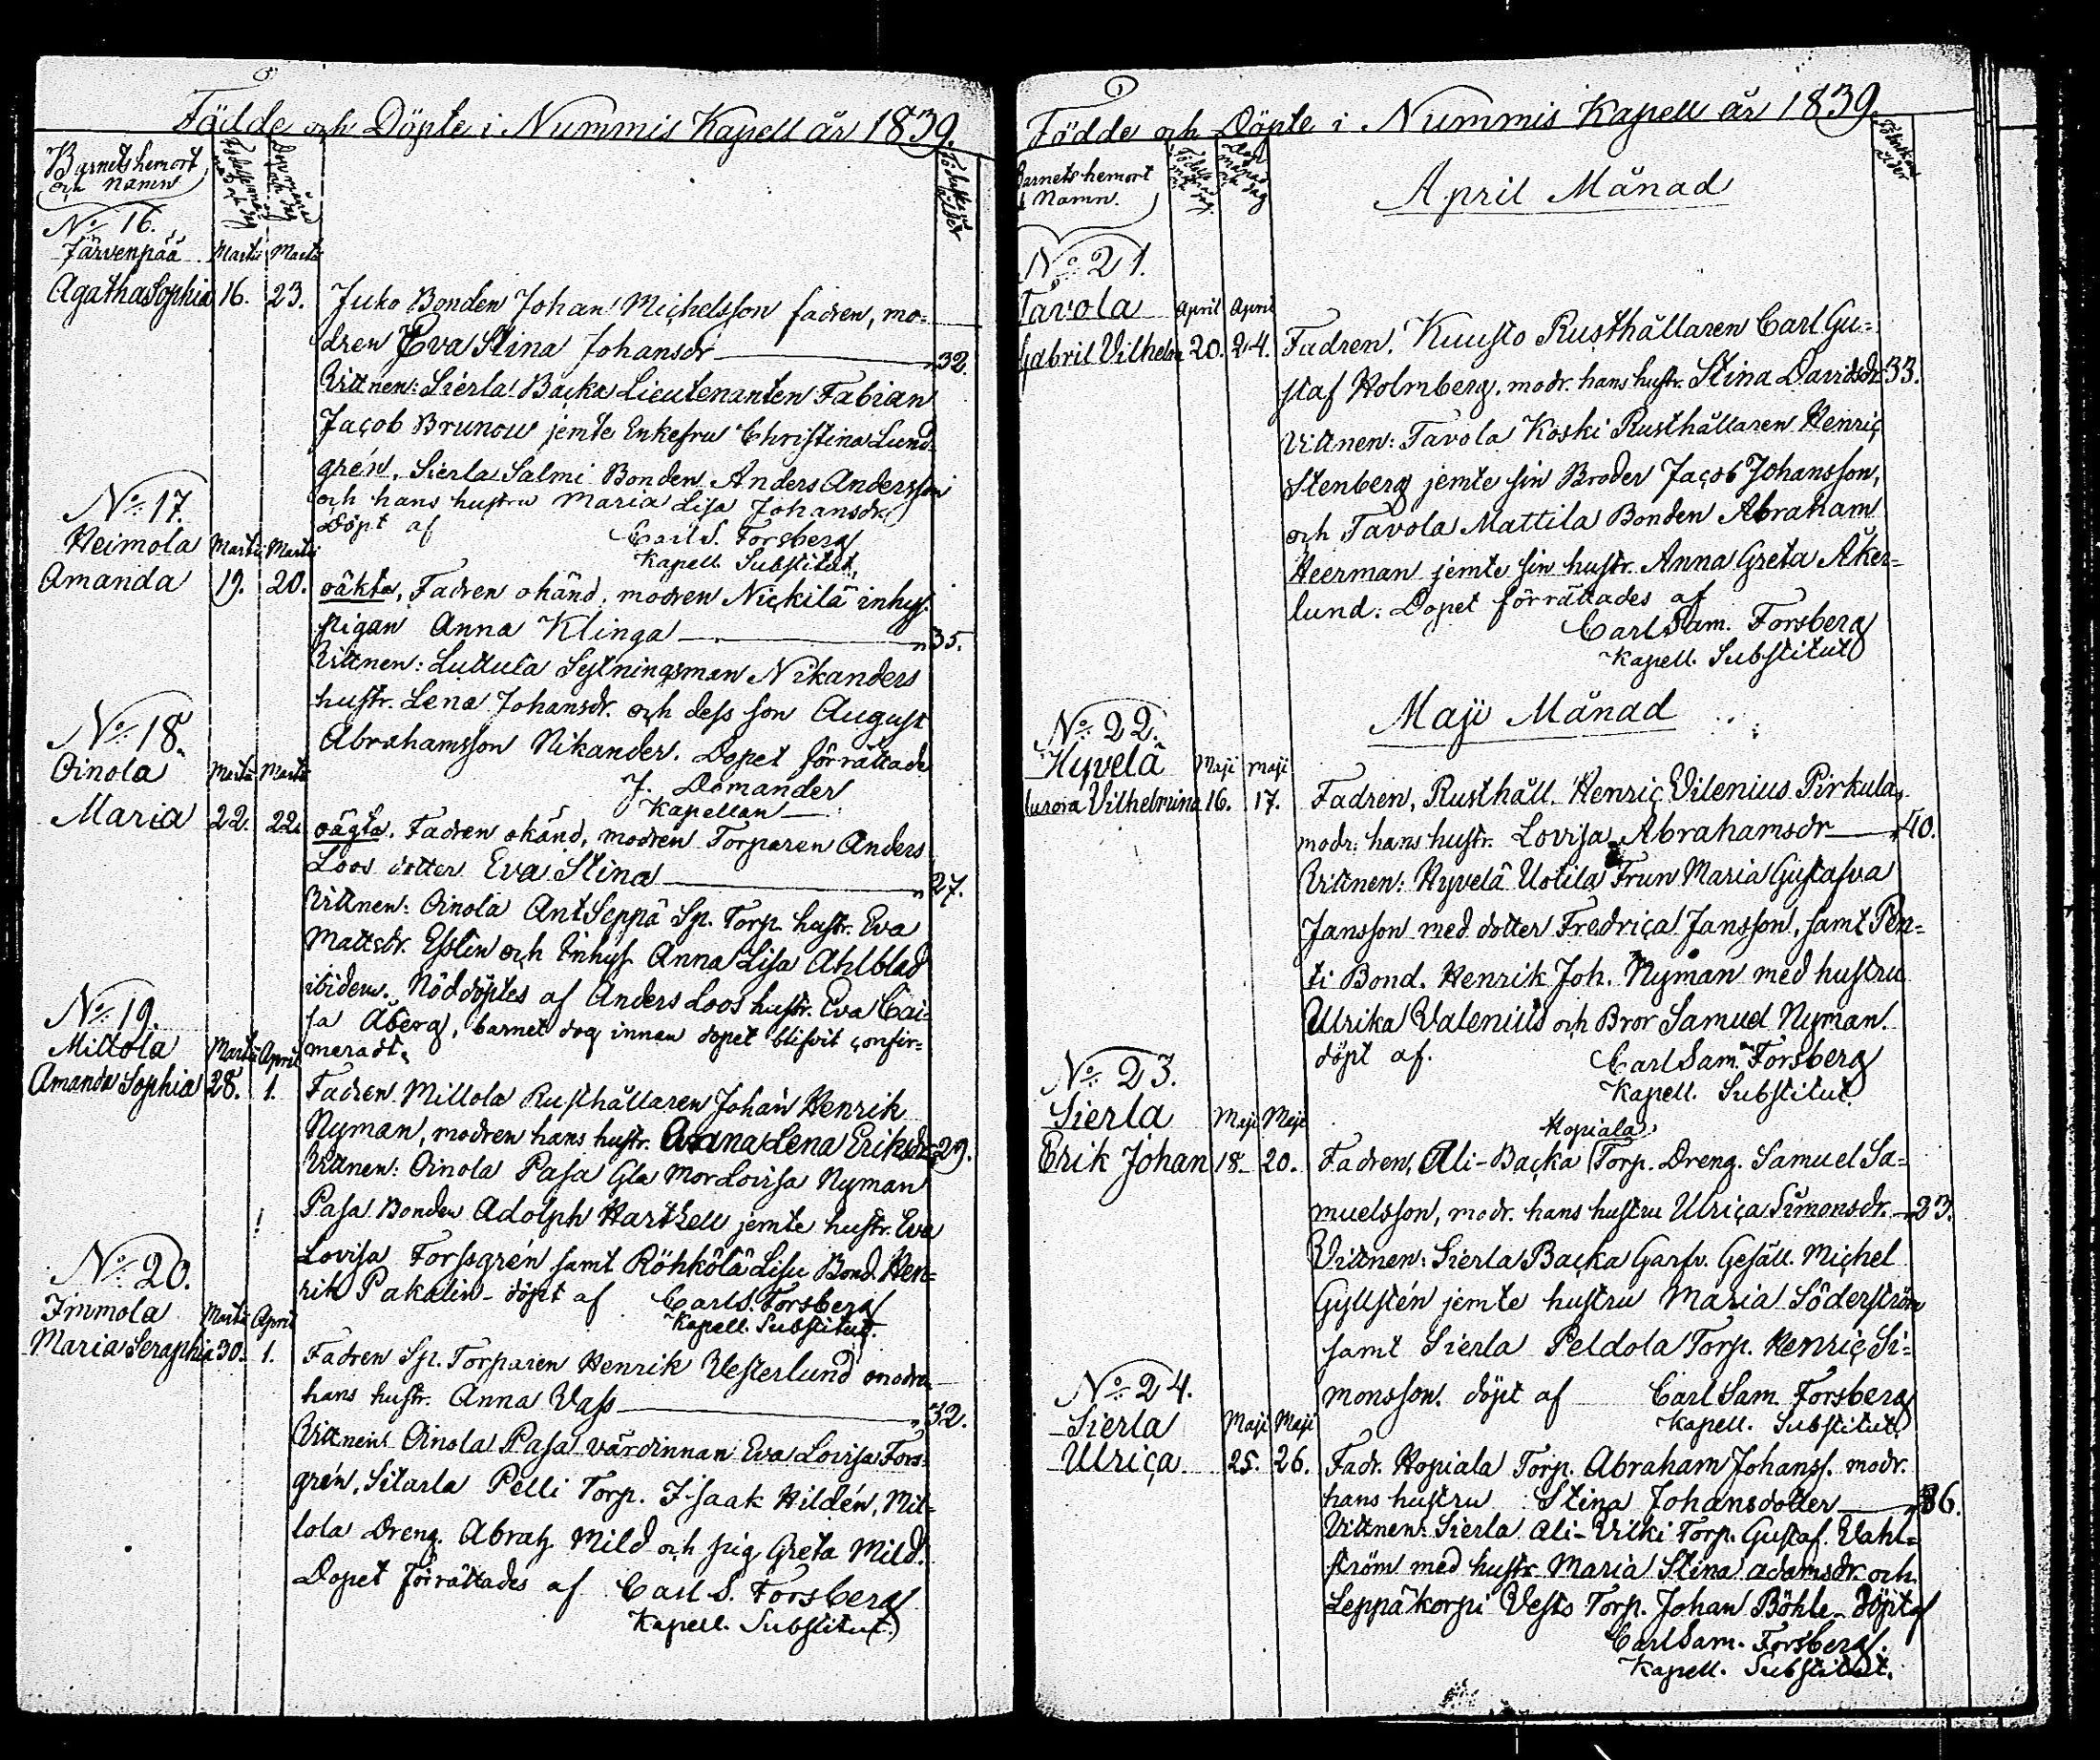 Födde och Döpte i Nummis Kapell år 1839.
Barnets hemort
och Namn
No 16.
Järvenpää Martii Martii
Agatha Sophia 16. 23. Juko Bonden Johan Michelsson fadren, mo-
dren Eva Stina Johansdr 32.
Vittnen: Sierla Backa Lieutenanten Fabian
Jacob Brunou jemte Enkefru Christina Lund-
grén, Sierla Salmi Bonden Anders Andersson
och hans hustru Maria Lisa Johansdr
Döpt af Carl S. Forsberg
Kapell. Substitut.
No 17.
Heimola Martii Martii
Amanda 19. 20. oäkta, Fadren okänd, modren Nickilä inhys.
pigan Anna Klinga 35.
Vittnen: Luttula Sytningsman Nikanders
hustr. Lena Johansdr. och dess son August
Abrahamsson Nikander. Dopet förrättade
J. Domander
Kapellan
No 18.
Oinola Martii Martii
Maria 22. 22. oägta. Fadren okänd, modren Torparen Anders
Loos dotter Eva Stina 27.
Vittnen: Oinola AntSeppä Sp. Torp. hustr. Eva
Mattsdr. Esslin och Inhys Anna Lisa Ahlblad
ibidem. Nöddöptes af Anders Loos hustr. Eva Cai-
sa Åberg, barnet dog innan dopet blifvit confir-
meradt.
No 19.
Millola Martii April
Amanda Sophia 28. 1. Fadren Millola Rusthållaren Johan Henrik
Nyman, modren hans hustr. Anna Lena Eriksdr 29.
Vittnen: Oinola Pasa Gla Mor Lovisa Nyman
Pasa Bonden Adolph Harthell jemte hustr. Eva
Lovisa Forssgrén samt Röhkölä Lisu Bond. Hen-
rik Pakalin - döpt af Carl S. Forsberg
Kapell. Substitut.
No 20.
Immola Martii April
Maria Seraphia 30. 1. Fadren Sp. Torparen Henrik Vesterlund modren
hans hustr. Anna Vass 32.
Vittnen Oinola Pasa värdinnan Eva Lovisa Fors-
grén, Sitarla Pelli Torp. Isaak Hildén, Mil-
lola Dreng. Abrah. Mild och pig Greta Mild.
Dopet förrättades af Carl S. Forsberg
Kapell. Substitut.
Födde och Döpte i Nummis Kapell år 1839.
Barnets hemort
Namn.
April Månad
No 21.
Tavola April April
Gabril Vilhelm 20. 24. Fadren. Kuusto Rusthållaren Carl Gu-
staf Holmberg, modr. hans hustr. Stina Davidsdr 33.
Vittnen: Tavola Koski Rusthållaren Henric
Stenberg jemte sin Broder Jacob Johansson,
och Tavola Mattila Bonden Abraham
Heerman jemte sin hustr. Anna Greta Åker-
lund. Dopet förrättades af
Carl Sam. Forsberg
Kapell. Substitut
Maji Månad
No 22.
Hyvelä Maji Maji
Aurora Vilhelmina 16. 17. Fadren, Rusthåll. Henric Vilenius Pirkula,
modr. hans hustr. Lovisa Abrahamsdr 40.
Vittnen: Hyvelä Uotila Frun Maria Gustafva
Jansson med dotter Fredrica Jansson, samt Pen-
ti Bond. Henrik Joh. Nyman med hustru
Ulrika Valenius och Bror Samuel Nyman.
döpt af. Carl Sam. Forsberg
Kapell. Substitut.
No 23.
Sierla Maji Maji
Hopiala
Erik Johan 18. 20. Fadren, Ali-Backa Torp. Dreng. Samuel Sa-
muelsson, modr. hans hustru Ulrica Simonsdr. 23.
Vittnen: Sierla Backa Garfv. Gesäll. Michel
Gyllstén jemte hustru Maria Söderström
samt Sierla Peldola Torp. Henric Si-
monsson. döpt af Carl Sam. Forsberg
Kapell. Substitut.
No 24.
Sierla Maji Maji
Ulrica 25. 26. Fadr. Hopiala Torp. Abraham Johanss. modr.
hans hustru Stina Johansdotter 36.
Vittnen: Sierla Ali-Vilki Torp. Gustaf. Vahl-
ström med hustr. Maria Stina Adamsdr och
Leppäkorpi Vests Torp. Johan Böhle. Döpt af
Carl Sam. Forsberg.
Kapell. Substitut.